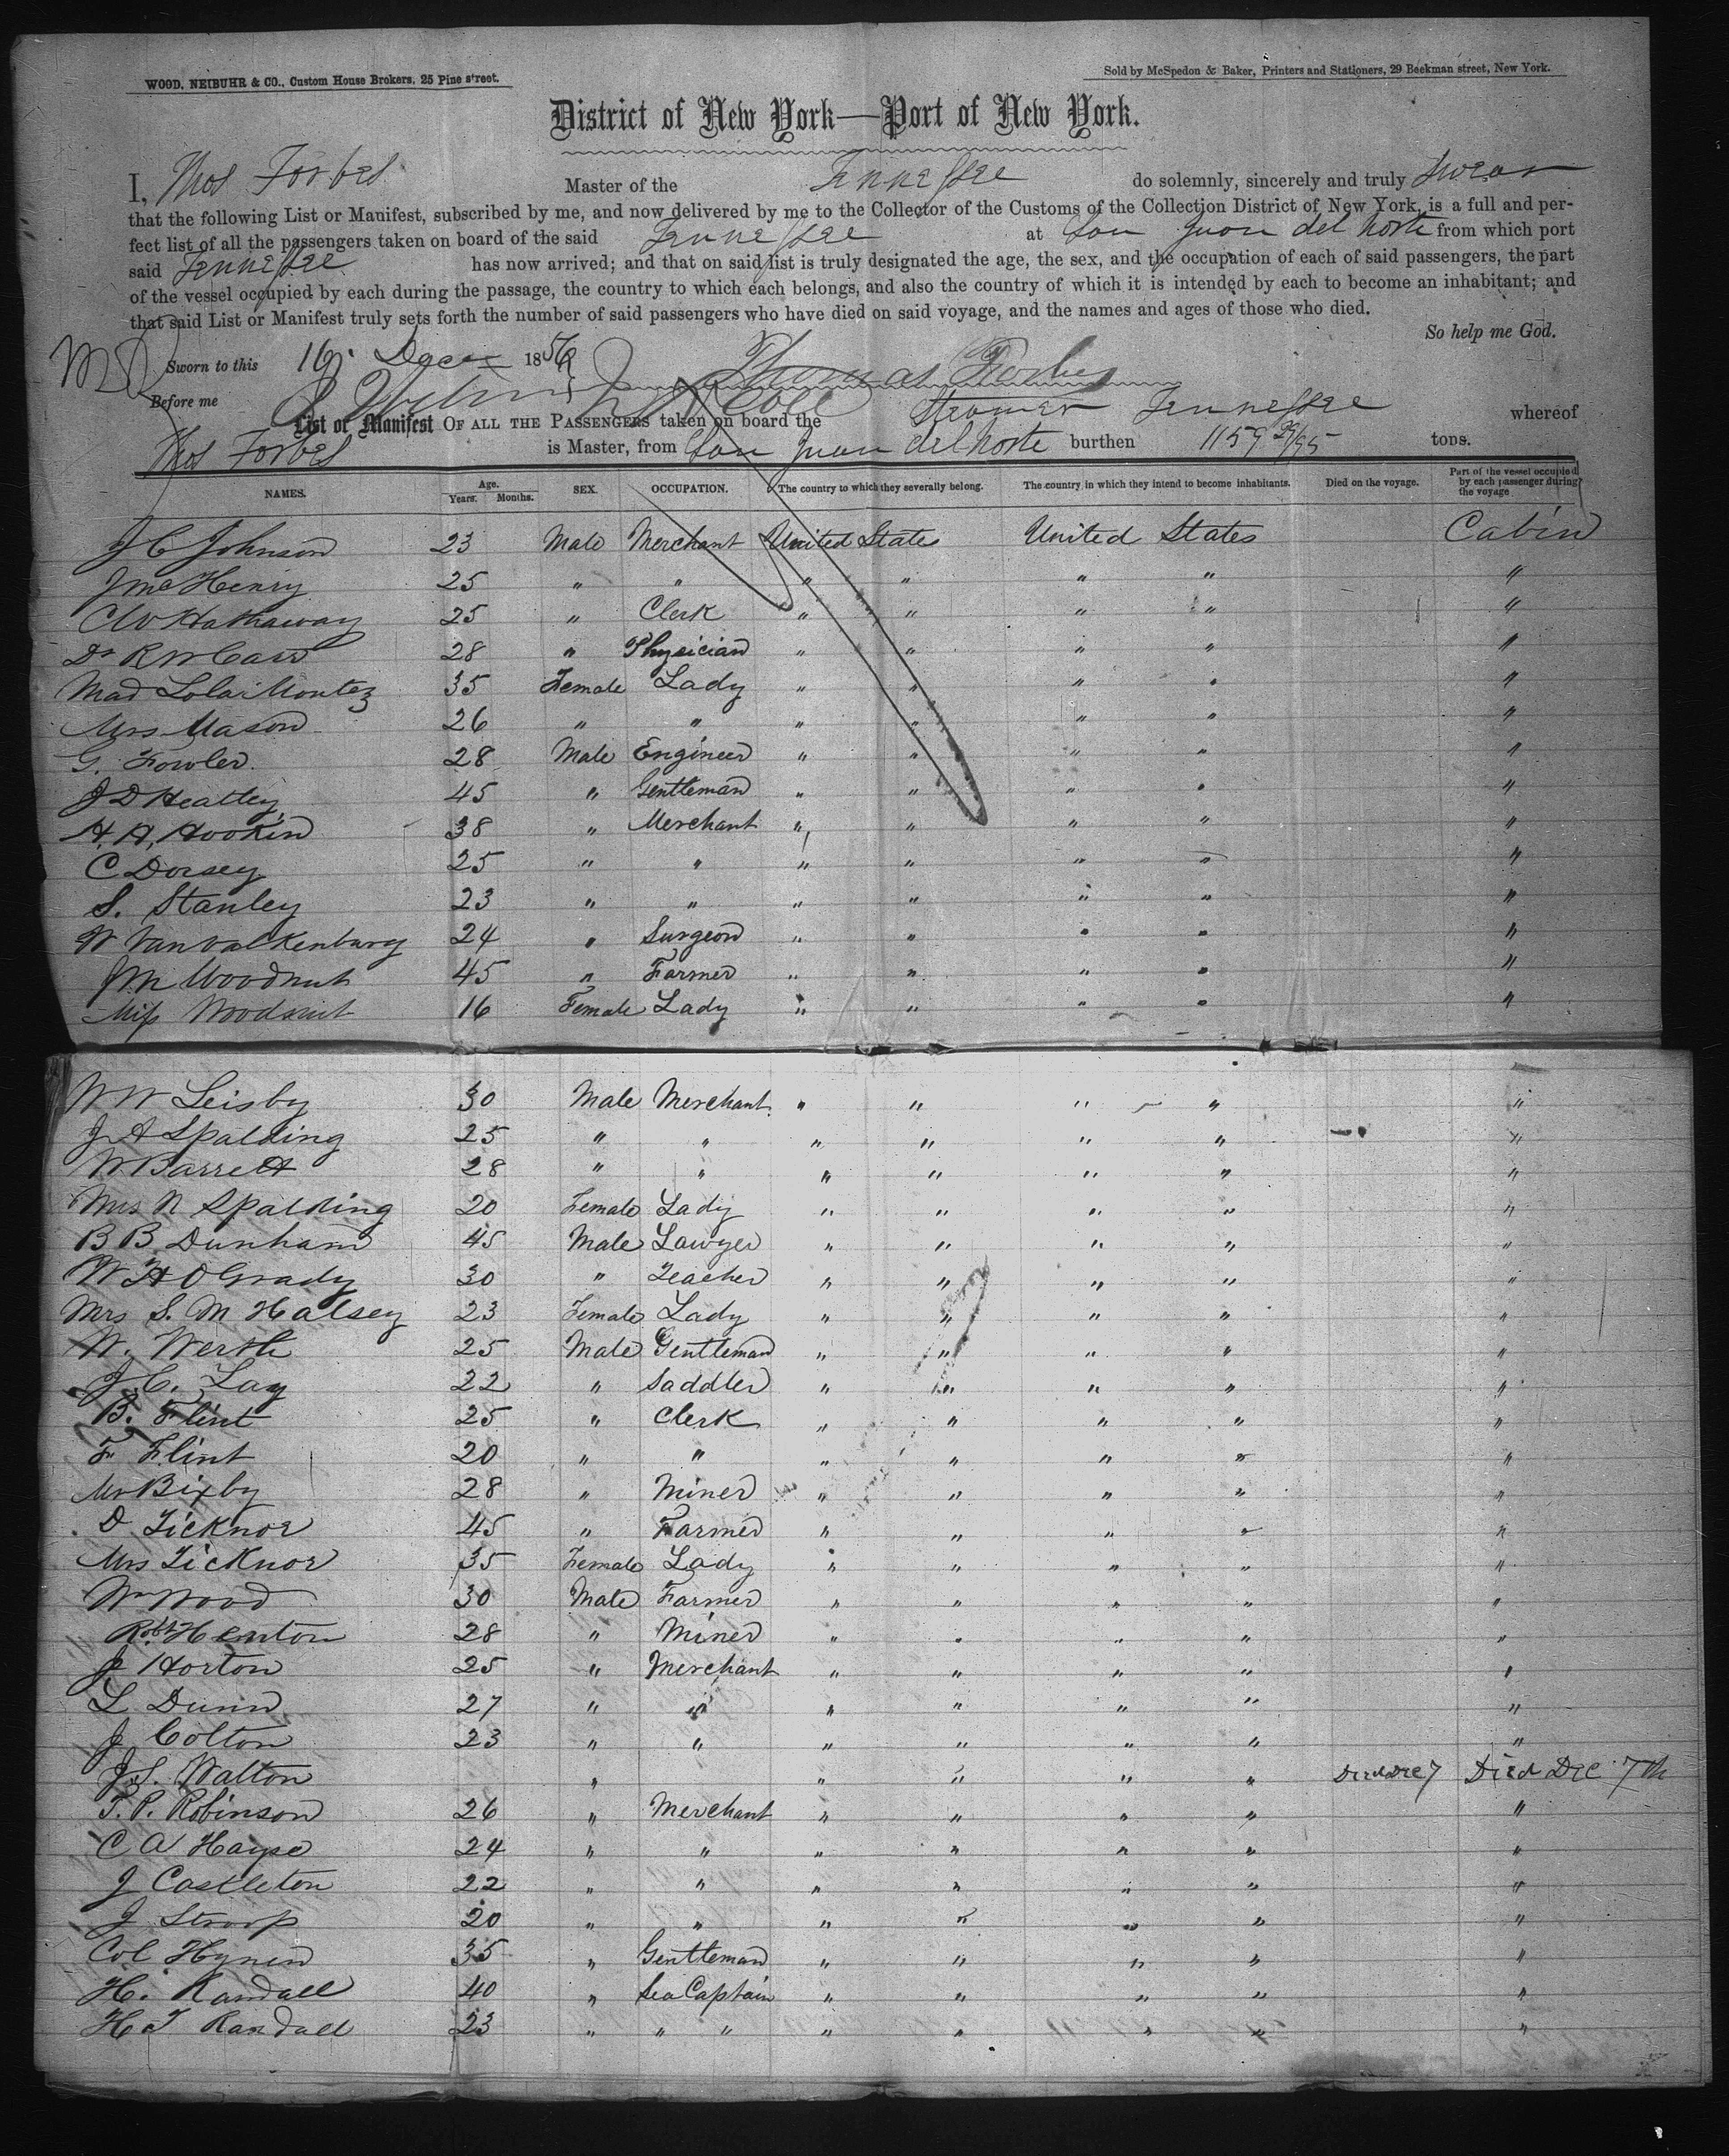 WOOD, NEIBUHR & CO., Custom House Brokers, 25 Pine street.
Sold by McSpedon & Baker, Printers and Stationers, 29 Beekman street, New York.
District of New York—Port of New York.
I, Thos Forbes Master of the Tennessee do solemnly, sincerely and truly swear
that the following List or Manifest, subscribed by me, and now delivered by me to the Collector of the Customs of the Collection District of New York, is a full and per-
fect list of all the passengers taken on board of the said Tennessee at San Juan del Norte from which port
said Tennessee has now arrived; and that on said list is truly designated the age, the sex, and the occupation of each of said passengers, the part
of the vessel occupied by each during the passage, the country to which each belongs, and also the country of which it is intended by each to become an inhabitant; and
that said List or Manifest truly sets forth the number of said passengers who have died on said voyage, and the names and ages of those who died.
So help me God.
Sworn to this 16 Dec 1856 Thomas Forbes
Before me
List or Manifest OF ALL THE PASSENGERS taken on board the Steamer Tennessee whereof
Thos Forbes is Master, from San Juan del Norte burthen 1159 29/95 tons.
NAMES. Age. Years. Months. SEX. OCCUPATION. The country to which they severally belong. The country in which they intend to become inhabitants. Died on the voyage. Part of the vessel occupied by each passenger during the voyage
J C Johnson 23 Male Merchant United States United States Cabin
J McHenry 25 " " " " " " "
C W Hathaway 25 " Clerk " " " " "
Dr R W Carr 28 " Physician " " " " "
Mad Lola Montez 35 Female Lady " " " " "
Mrs Mason 26 " " " " " " "
G. Fowler 28 Male Engineer " " " " "
J D Heatley 45 " Gentleman " " " " "
H. A. Hookin 38 " Merchant " " " " "
C Dorsey 25 " " " " " " "
S. Stanley 23 " " " " " " "
W Van Valkenburg 24 " Surgeon " " " " "
J M Woodnut 45 " Farmer " " " " "
Miss Woodnut 16 Female Lady " " " " "
W W Leisby 30 Male Merchant " " " " "
J A Spalding 25 " " " " " " "
W Barrett 28 " " " " " " "
Mrs N Spalding 20 Female Lady " " " " "
B B Dunham 45 Male Lawyer " " " " "
W H O Grady 30 " Teacher " " " " "
Mrs S. M Halsey 23 Female Lady " " " " "
W. Werth 25 Male Gentleman " " " " "
J. C. Lay 22 " Saddler " " " " "
B. Flint 25 " Clerk " " " " "
F Flint 20 " " " " " " "
Mr Bixby 28 " Miner " " " " "
D. Ticknor 45 " Farmer " " " " "
Mrs Ticknor 35 Female Lady " " " " "
Wm Wood 30 Male Farmer " " " " "
Robt Henton 28 " Miner " " " " "
J Horton 25 " Merchant " " " " "
L Dunn 27 " " " " " " "
J Colton 23 " " " " " " "
J. S. Walton " " " " " Died Dec 7 Died Dec 7th
T. P. Robinson 26 " Merchant " " " " "
C A Hayse 24 " " " " " " "
J Castleton 22 " " " " " " "
J Stroop 20 " " " " " " "
Col Hynen 35 " Gentleman " " " " "
H. Randall 40 " Sea Captain " " " " "
H T Randall 23 " " " " " " " "